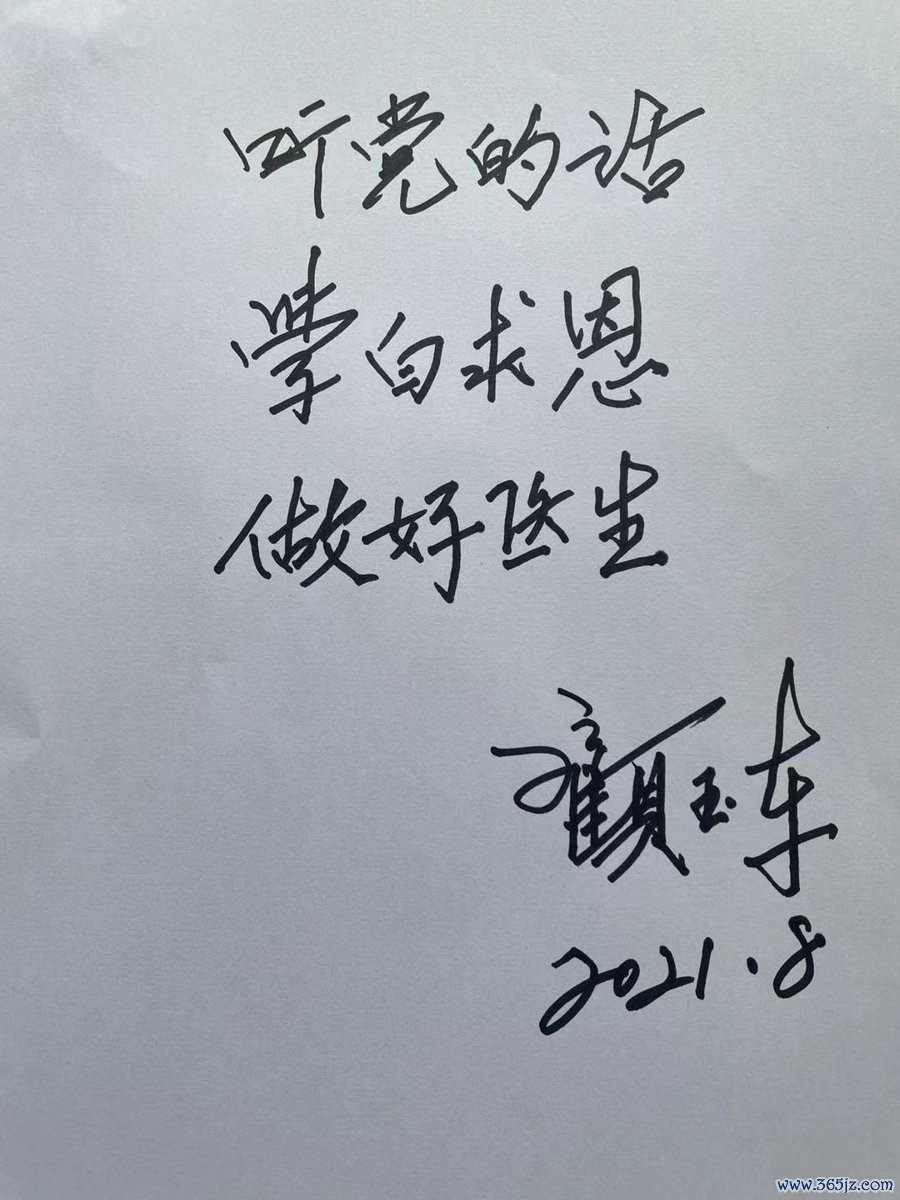 听党的话
学白求恩
做好医生
顾玉东
2021.8
www.365jz.com